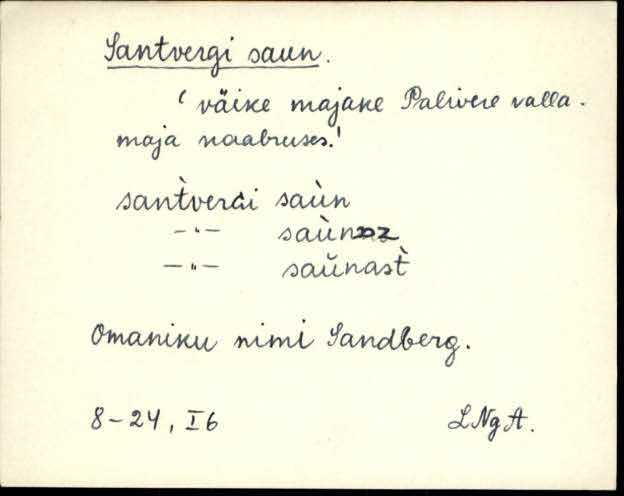 Santvergi saun.
‘ väike majake Palivere valla-
maja naabruses.’
santvergi saùn
—„— saùnaz
—„— saŭnast̀
Omaniku nimi Sandberg.
8-24, I6 LNgA.